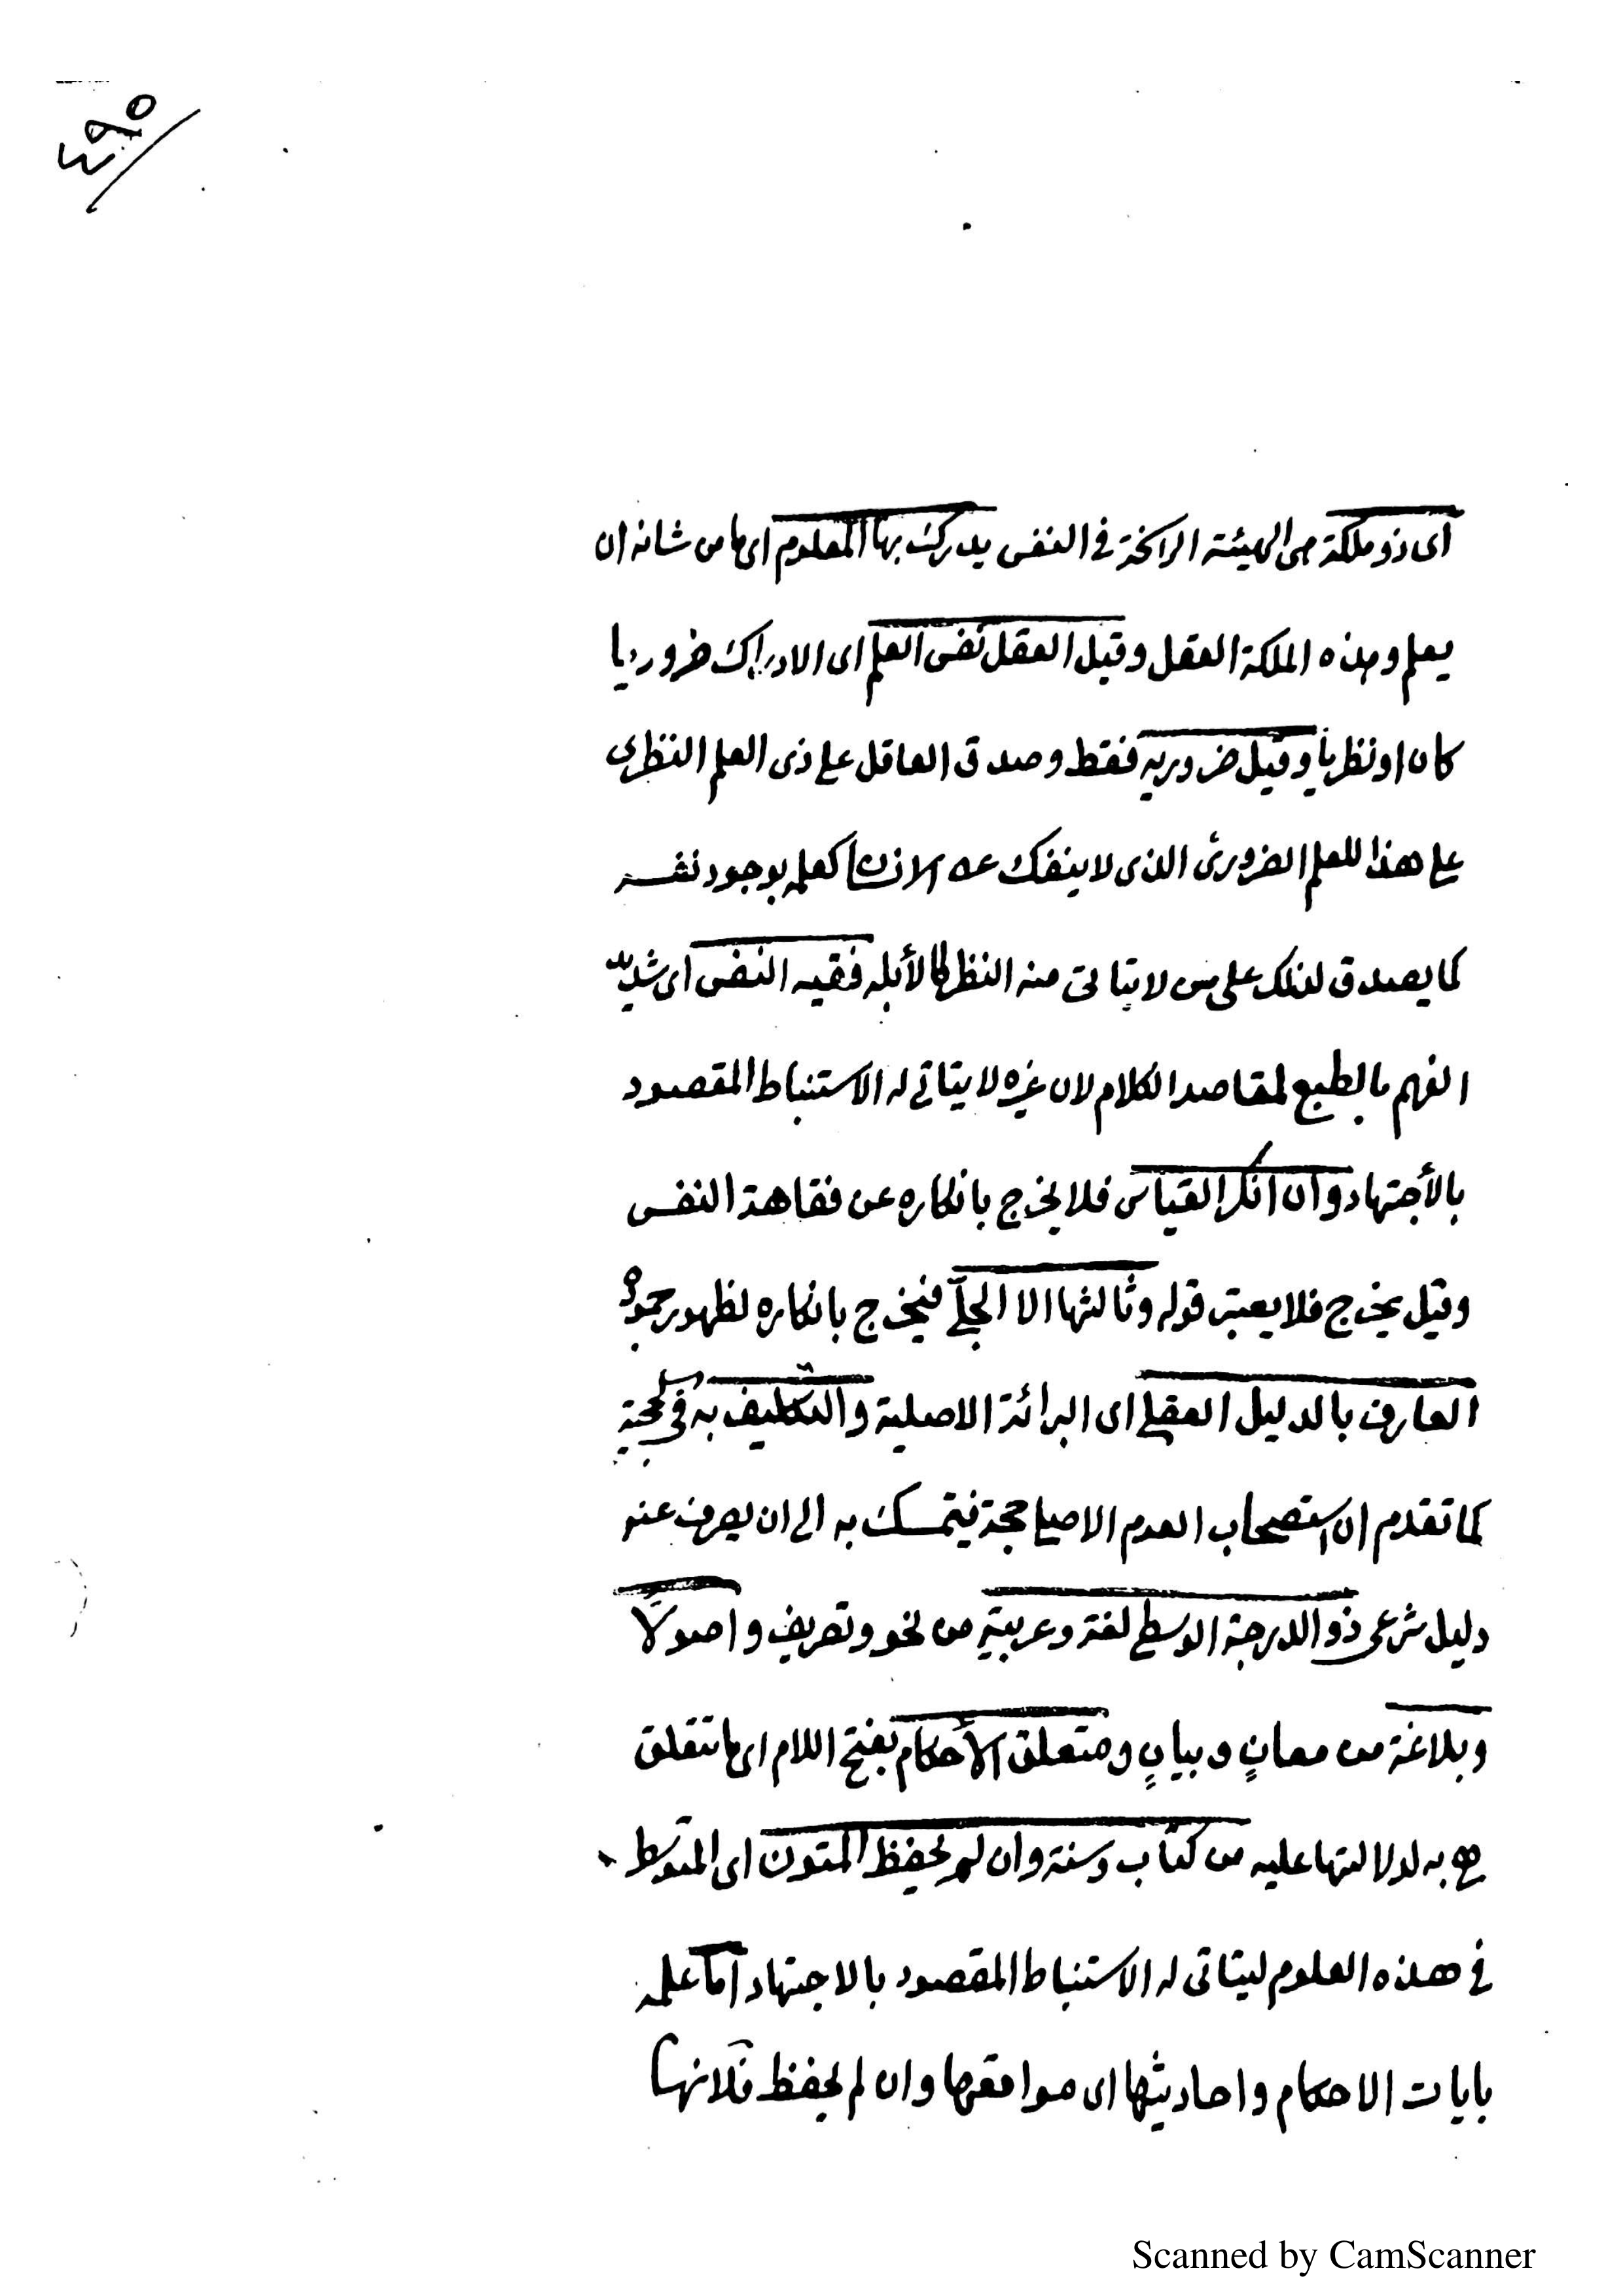 ٤٩٥
اى ذو ملكة هى الهيئة الراسخة فى النفس يدرك بها المعلوم اى ما من شانه ان
يعلم وهذه الملكة العقل وقيل العقل نفس العلم اى الادراك ضروريا
كان او نظريا وقيل ضروريه فقط وصدق العاقل على ذى العلم النظرى
على هذا للعلم الضرورى الذى لا ينفك عنه الانسان كعلمه بوجود نفسه
كما يصدق لذلك على من لا يتاتى منه النظر كالأبله فقيه النفس اى شديد
الفهم بالطبع لمقاصد الكلام لان غيره لا يتاتى له الاستنباط المقصود
بالأجتهاد وان انكر القياس فلا يخرج بانكاره عن فقاهة النفس
وقيل يخرج فلا يعتبر قوله وثالثها الا الجلى فيخرج بانكاره لظهور جموده
العارف بالدليل العقلى اى البرائة الاصلية والتكليف به فى الحجية
كما تقدم ان استصحاب العدم الاصلى حجة فيتمسك به الى ان يصرف عنه
دليل شرعى ذو الدرجة الوسطى لغة وعربية من نحو وتصريف واصولاً
وبلاغة من معانٍ وبيانٍ ومتعلق الأحكام بفتح اللام اى ما تتعلق
هى به لدلالتها عليه من كتاب وسنة وان لم يحفظ المتون اى المتوسط
فى هذه العلوم ليتاتى له الاستنباط المقصود بالاجتهاد اما علمه
بايات الاحكام واحاديثها اى مواقعها وان لم يحفظ فلانها
Scanned by CamScanner